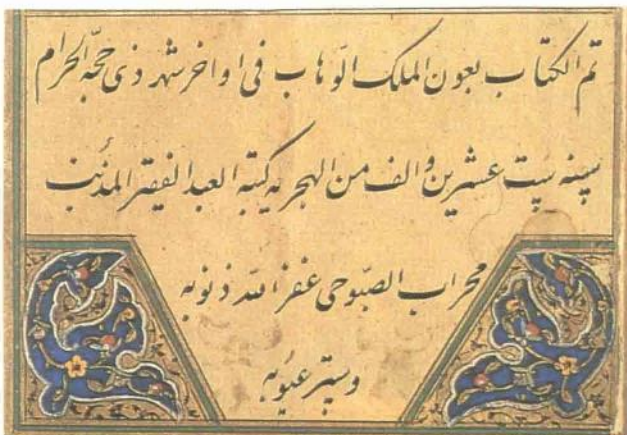 تم الكتاب بعون الملك الوّهاب فی اواخر شهر ذی حجّة الحرام
سنه ست عشرین و الف من الهجریه کتبه العبد الفقیر المذنب
محراب الصبّوحی غفر الله ذنوبه
و ستر عیوبه